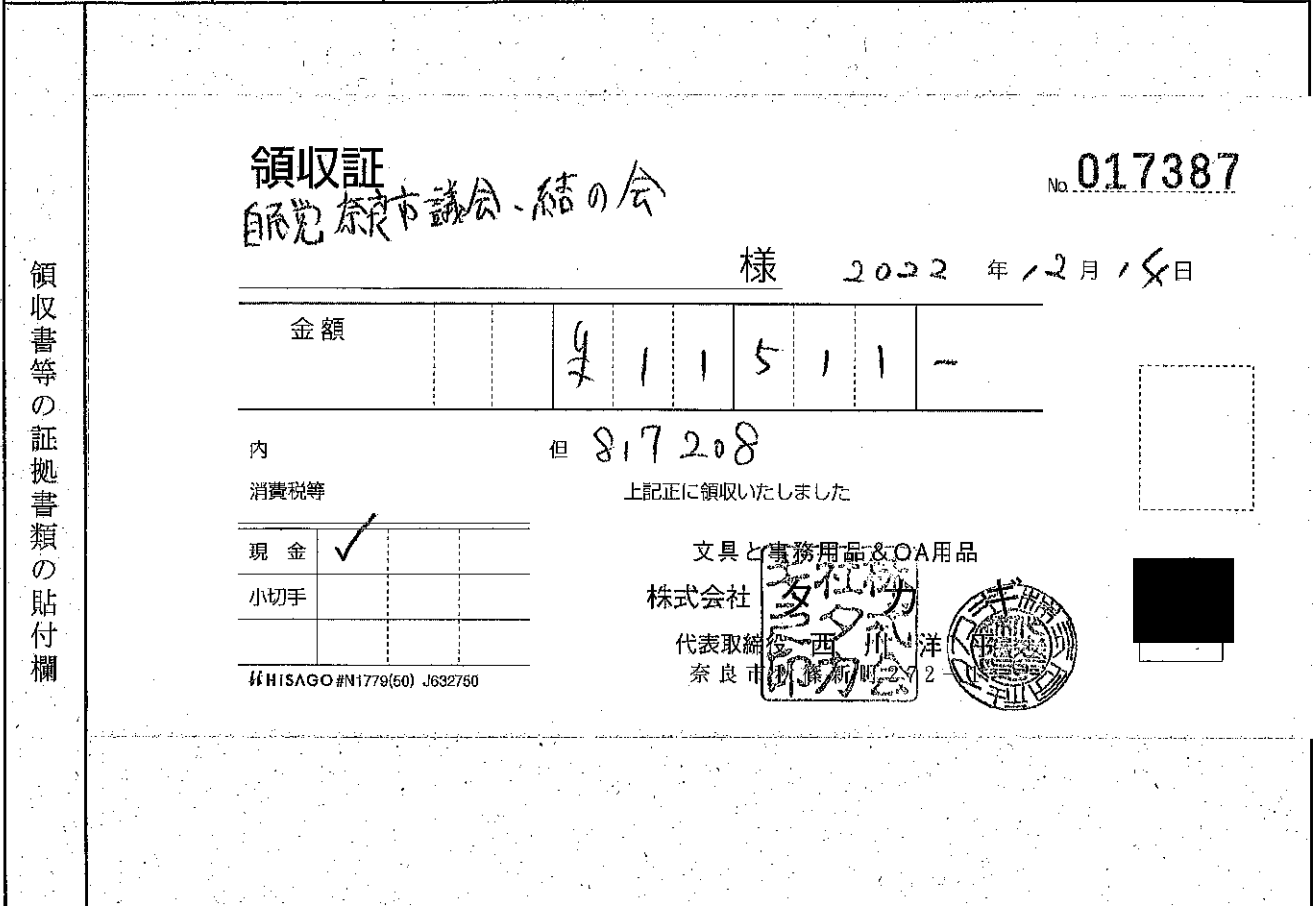 領収書等の証拠書類の貼付欄
領収証
No. 017387
自民党奈良市議会、結の会
様 2022 年 12月 15日
金額 ¥11511-
内 但 817208
消費税等 上記正に領収いたしました
現金 ✓
小切手
文具と事務用品&OA用品
株式会社 タカタ
代表取締役 西川洋平
奈良市秋篠新町272-1
HISAGO #N1779(50) J632750